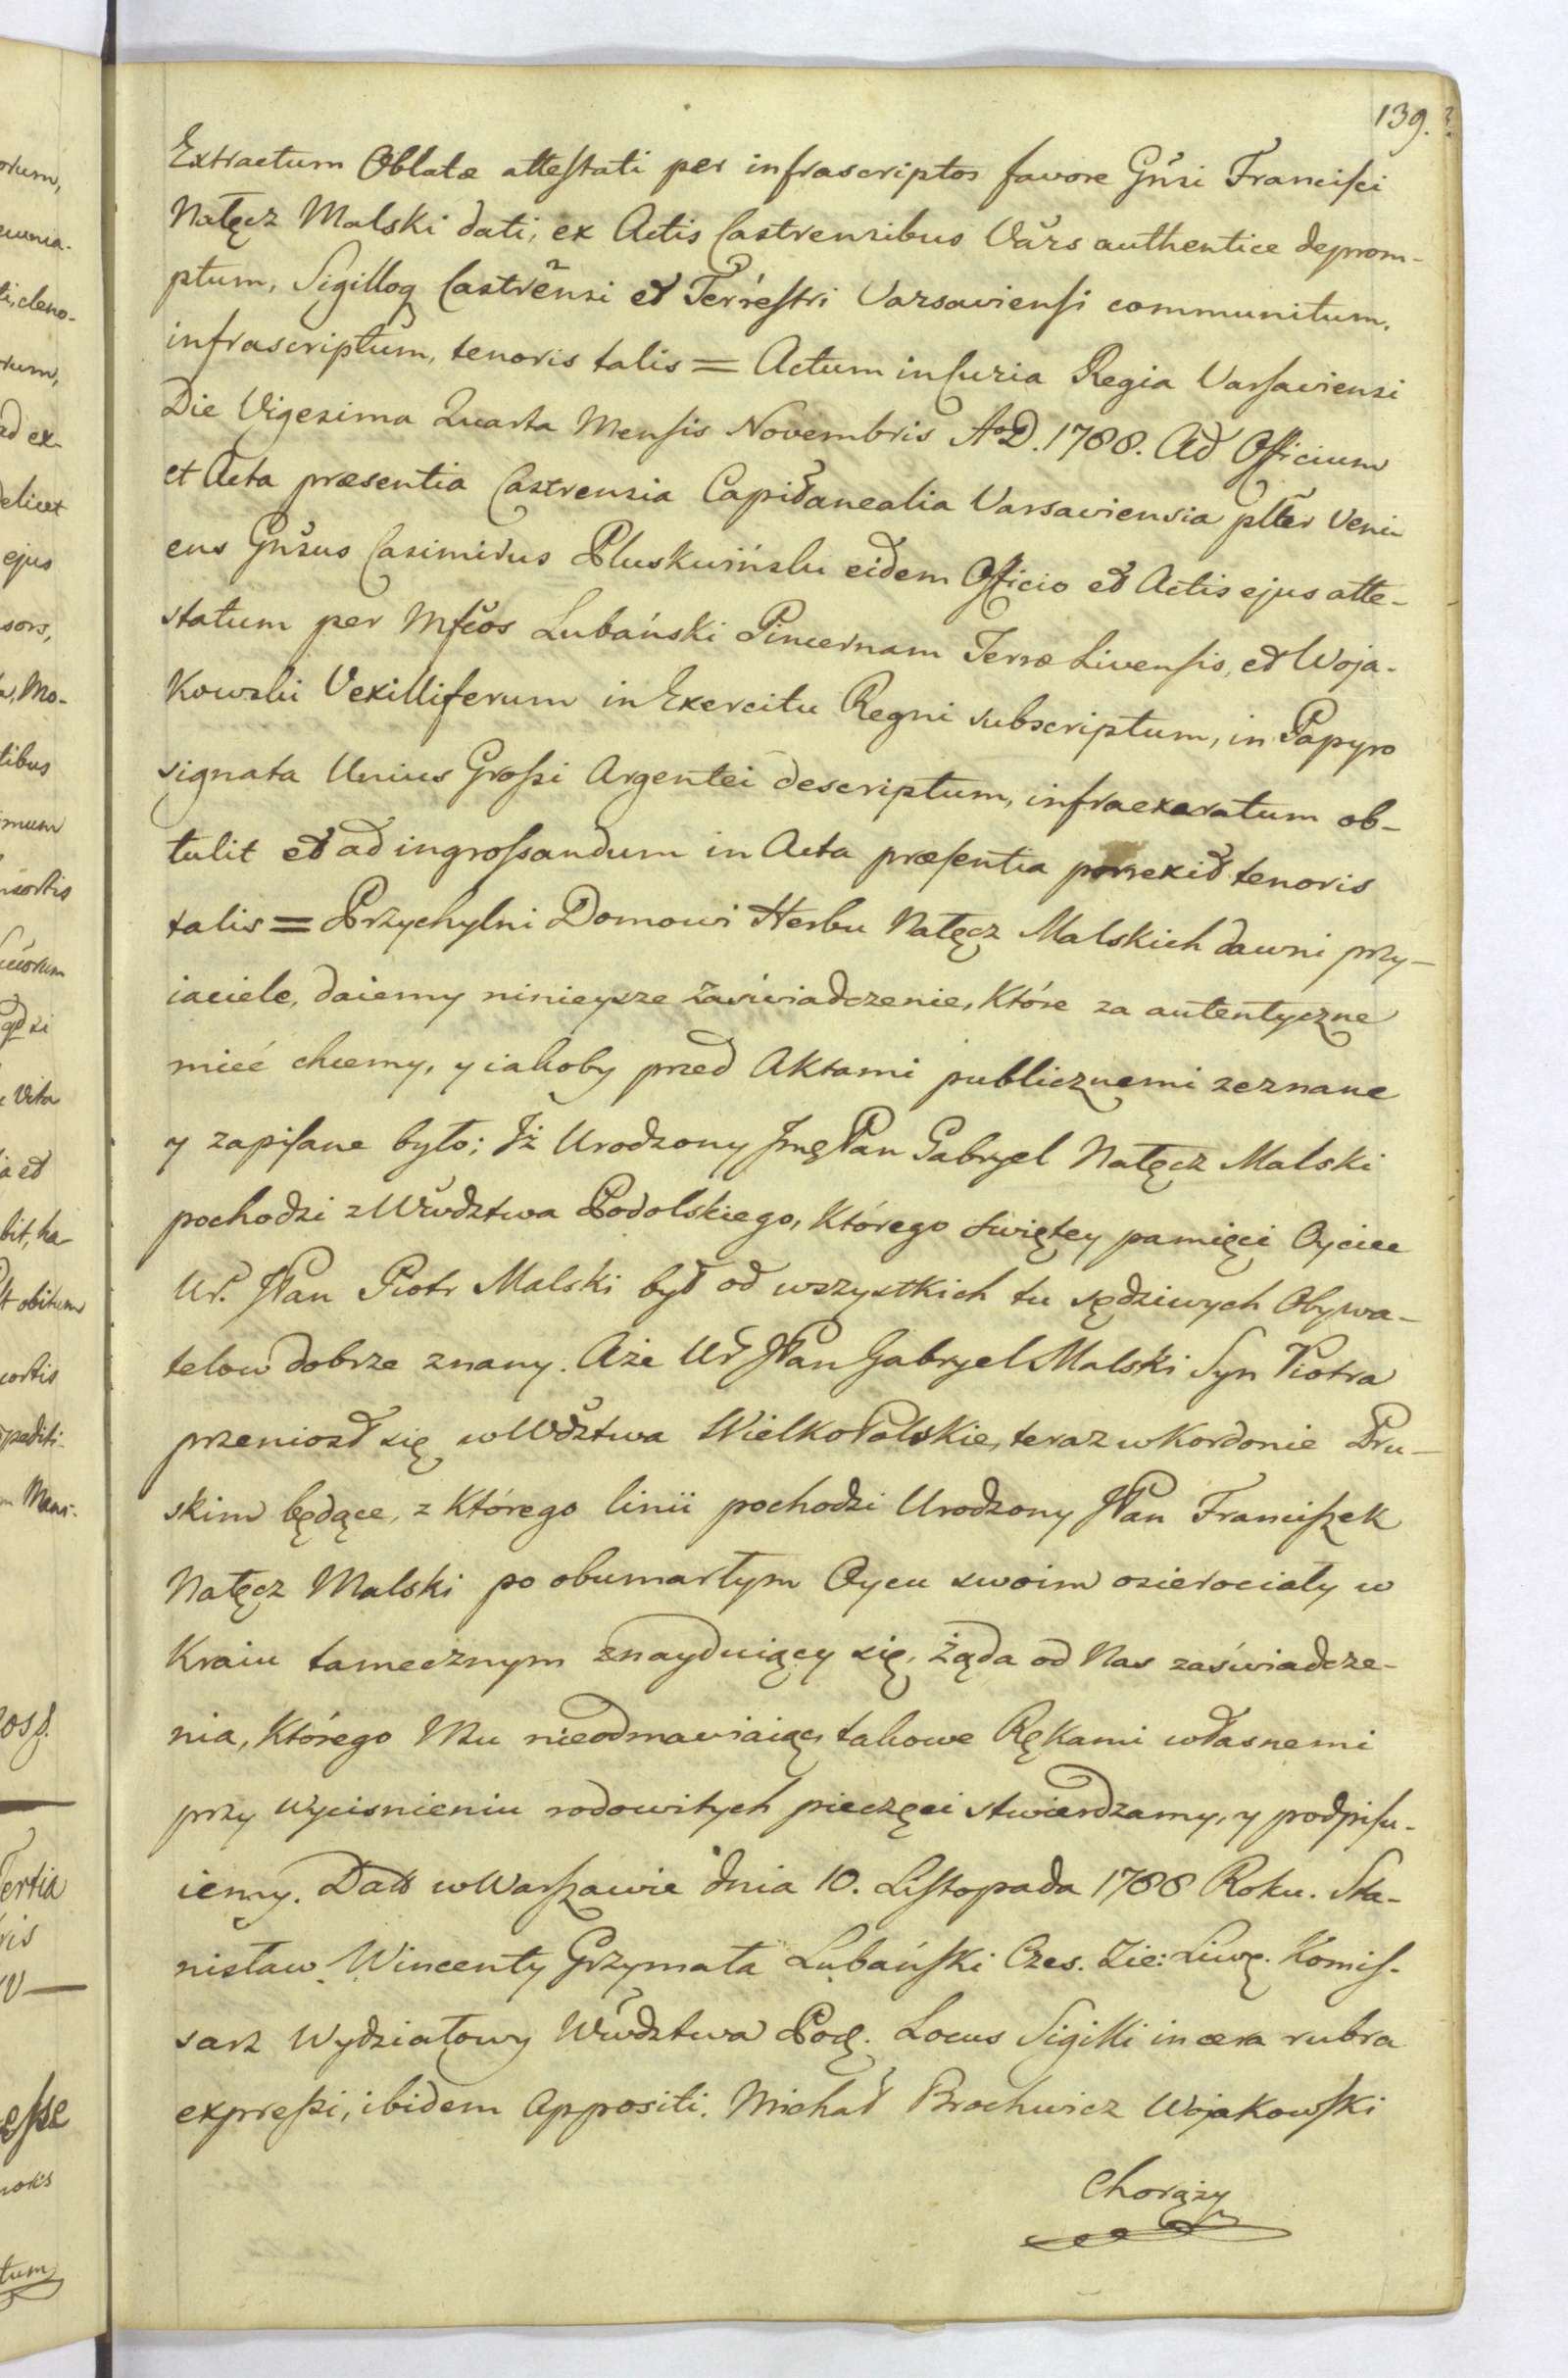 139.
Extractum Oblatæ attestati per infrascriptos favore Gnsi Francisci
Nałęcz Malski dati, ex Actis Castrensibus Vars authentice deprom-
ptum, Sigilloq Castrensi et Terrestri Varsaviensi communitum,
infrascriptum, tenoris talis = Actum in Curia Regia Varsaviensi
Die Vigesima Quarta Mensis Novembris AoD. 1788. Ad Officium
et Acta præsentia Castrensia Capitanealia Varsaviensia plter Veni
ens Gnsus Casimirus Pluskwiński eidem Officio et Actis ejus atte-
statum per Mfcos Lubański Pincernam Terræ Livensis, et Woja-
Kowski Vexilliferum in Exercitu Regni subscriptum, in Papyro
signata Unius Grossi Argentei descriptum, infraexaratum ob-
tulit et ad ingrossandum in Acta præsentia porrexit tenoris
talis = Przychylni Domowi Herbu Nałęcz Malskich dawni przy-
iaciele, daiemy ninieysze zaświadczenie, Które za autentyczne
mieć chcemy, y iakoby przed Aktami publicznemi zeznane
y zapisane było; Jż Urodzony Jmę Pan Gabryel Nałęcz Malski
pochodzi z Wwdztwa Podolskiego, Którego świętey pamięci Oyciec
Ur. JPan Piotr Malski był od wszystkich tu sędziwych Obywa-
telow dobrze znany. Aże Ur JPan Gabryel Malski Syn Piotra
przeniosł się w Wdztwa WielkoPolskie, teraz w Kordonie Pru-
skim będące, z Którego linii pochodzi Urodzony JPan Franciszek
Nałęcz Malski po obumarłym Oycu swoim osierociały w
Kraiu tamecznym znayduiący się, żąda od Nas zaświadcze-
nia, Którego Mu nieodmawiaiąc, takowe Rękami własnemi
przy wyciśnieniu rodowitych pieczęci stwierdzamy, y podpisu-
iemy. Datt w Warszawie dnia 10. Listopada 1788 Roku. Sta-
nisław Wincenty Grzymała Lubański Czes. Zie: Liwę. Komis-
sarz Wydziałowy Wwdztwa Podl. Locus Sigilli in cera rubra
expressi, ibidem appositi. Michał Brochwicz Wojakowski
Chorąży